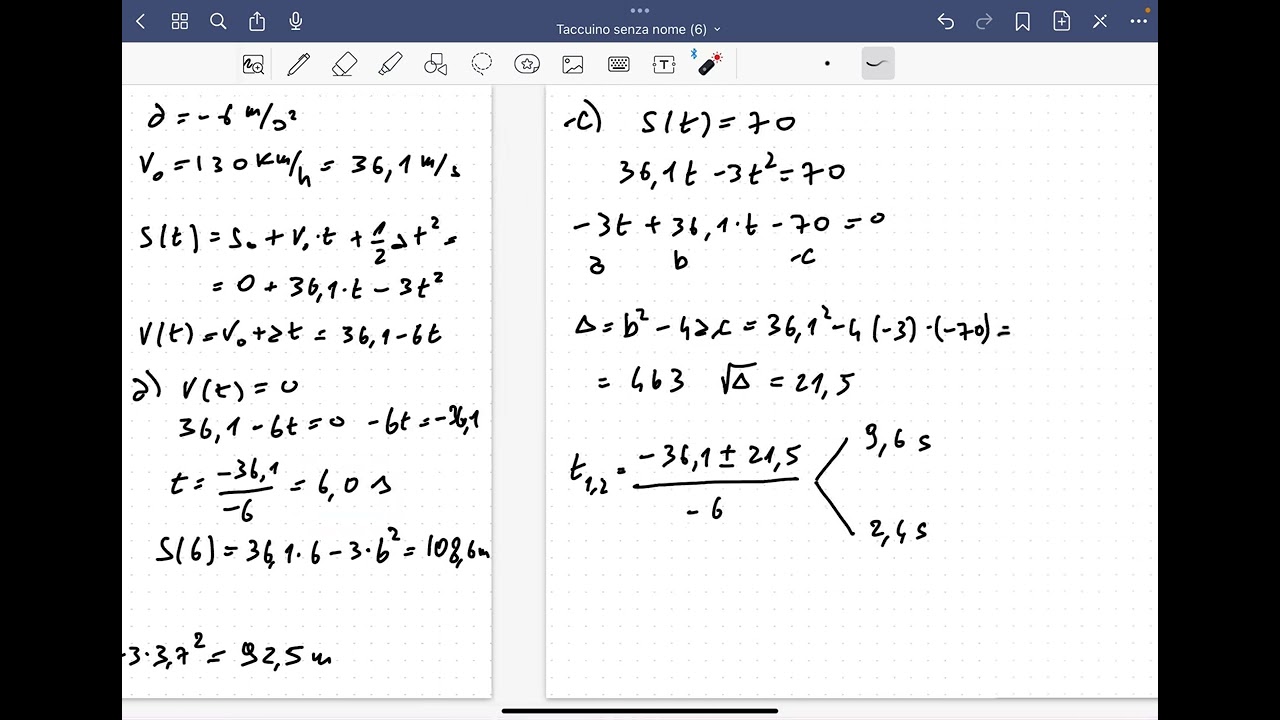 Taccuino senza nome (6)
a = -6 m/s²
V₀ = 130 Km/h = 36,1 m/s
S(t) = S₀ + V₀·t + 1/2 a t² =
= 0 + 36,1·t - 3t²
V(t) = V₀ + at = 36,1 - 6t
a) V(t) = 0
36,1 - 6t = 0 -6t = -36,1
t = -36,1/-6 = 6,0 s
S(6) = 36,1·6 - 3·6² = 108,6 m
3·3,7² = 92,5 m
c) S(t) = 70
36,1t - 3t² = 70
-3t + 36,1·t - 70 = 0
a b c
Δ = b² - 4ac = 36,1² - 4(-3)·(-70) =
= 463 √Δ = 21,5
t₁,₂ = -36,1 ± 21,5 / -6
9,6 s
2,4 s